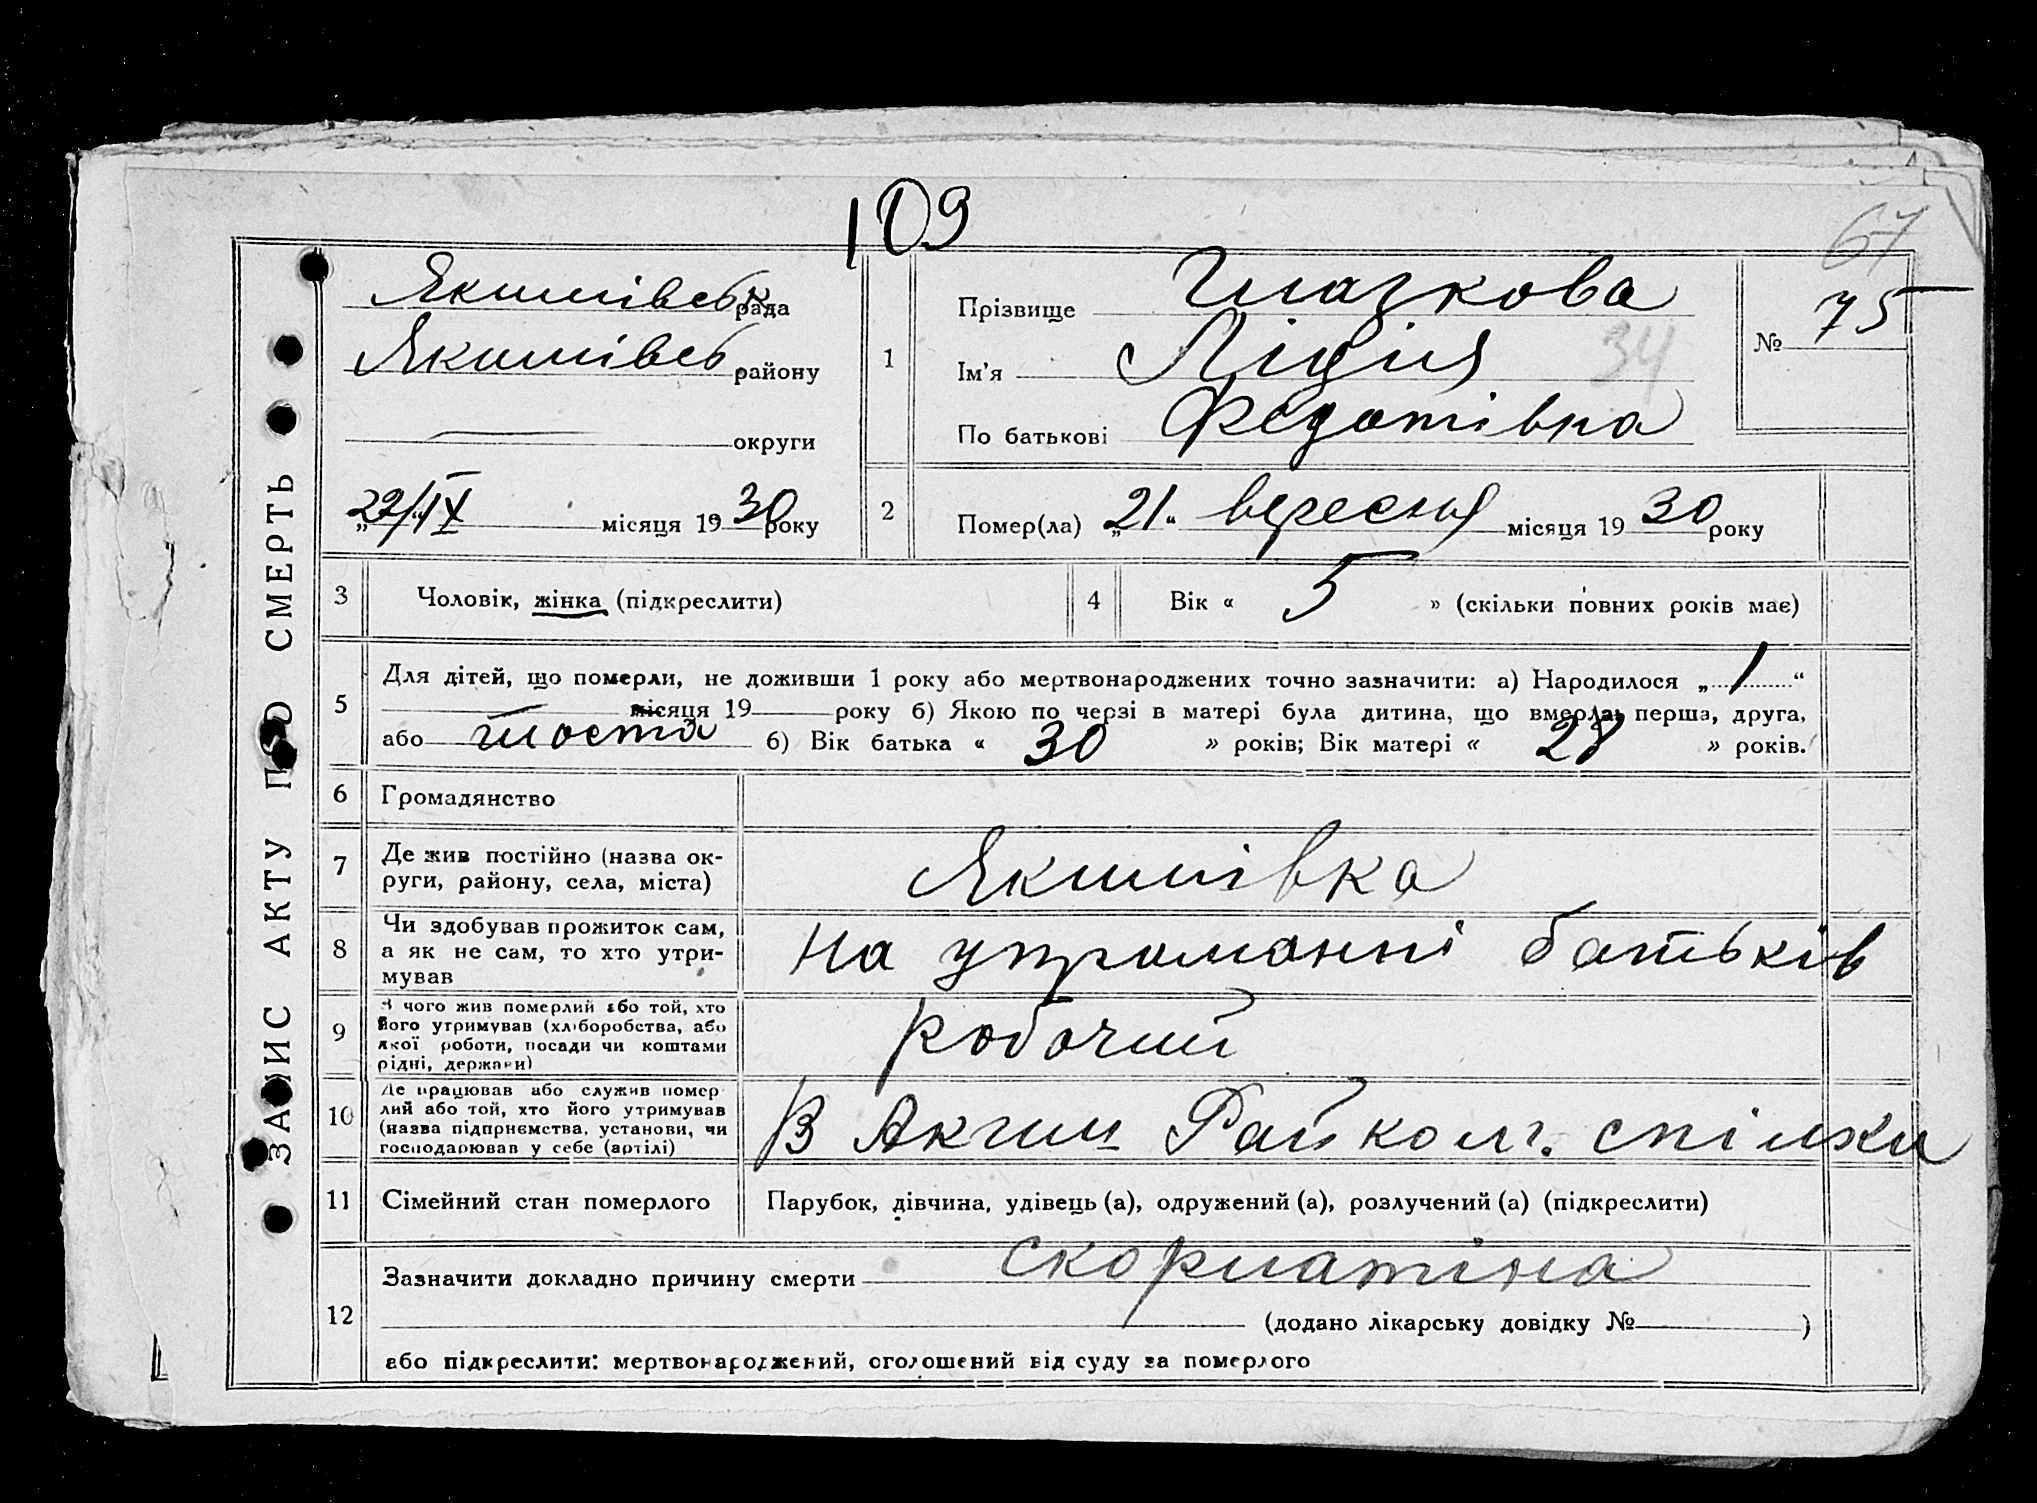 109
67
Якимівськ рада
Якимівсь району
округи
22/IX місяця 1930 року
1
Прізвище Глазкова
Ім'я Лідія
34
По батькові Федотівна
№ 75
2 Помер(ла) „21“ вересня місяця 1930 року
3 Чоловік, жінка (підкреслити)
4 Вік « 5 » (скільки повних років має)
5 Для дітей, що померли, не доживши 1 року або мертвонароджених точно зазначити: а) Народилося „ 1 “
місяця 19 року б) Якою по черзі в матері була дитина, що вмерла: перша, друга,
або шоста б) Вік батька « 30 » років; Вік матері « 28 » років.
6 Громадянство
7 Де жив постійно (назва ок-
руги, району, села, міста)
Якимівка
8 Чи здобував прожиток сам,
а як не сам, то хто утри-
мував
на утриманні батьків
9 З чого жив померлий або той, хто
його утримував (хліборобства, або
якої роботи, посади чи коштами
рідні, держави)
робочий
10 Де працював або служив помер
лий або той, хто його утримував
(назва підприємства, установи, чи
господарював у себе (артілі)
В Райколг. спілки
11 Сімейний стан померлого
Парубок, дівчина, удівець (а), одружений (а), розлучений (а) (підкреслити)
12 Зазначити докладно причину смерти скорлатіна
(додано лікарську довідку № )
або підкреслити: мертвонароджений, оголошений від суду за померлого
ЗАПИС АКТУ ПРО СМЕРТЬ